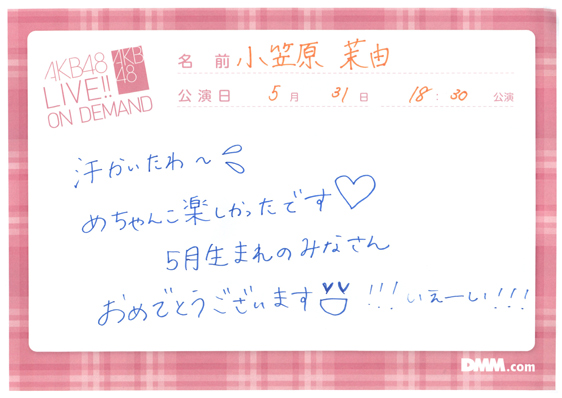 AKB48
LIVE!!
ON DEMAND
AKB
48
名前 小笠原 茉由
公演日 5月 31日 18:30 公演
汗かいたわ〜
めちゃんこ楽しかったです♡
5月生まれのみなさん
おめでとうございます !!!いぇーい!!!
DMM.com